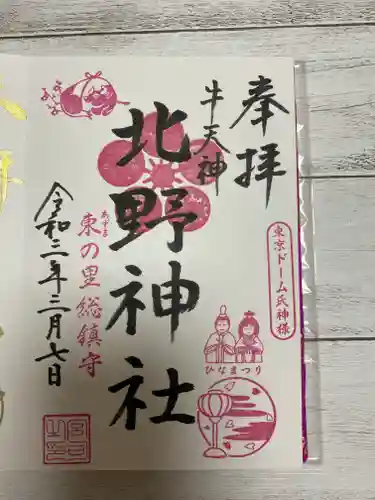 奉拝
牛天神
北野神社
東京ドーム氏神様
ひなまつり
あずま
東の里総鎮守
令和三年三月七日